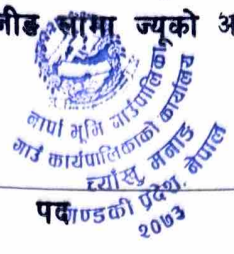 जीङ लामा ज्यूको अ
नार्पा भूमि गाउँपालिका
गाउँ कार्यपालिकाको कार्यालय
च्याँखु, मनाङ
पद
गण्डकी प्रदेश, नेपाल
२०७३